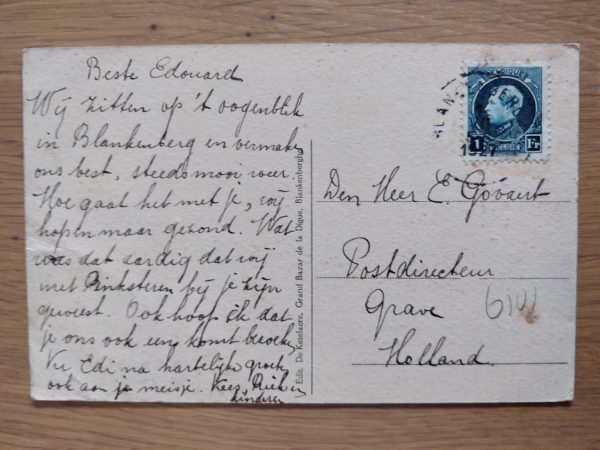 Beste Edouard
Wij zitten op 't oogenblik
in Blankenberg en vermaken
ons best, steeds mooi weer.
Hoe gaat het met je, wij
hopen maar gezond. Wat
was dat aardig dat wij
met Pinksteren bij je zijn
geweest. Ook hoop ik dat
je ons ook eens komt bezoeken
Nu Edi na hartelijke groet
ook aan je meisje. Kees, Riek en
kinderen
Edit. De Keselaere, Grand Bazar de la Digue, Blankenberghe
BELGIQUE
1 Fr
BELGIE
BLANKENBER
1927
Den Heer E. Govaert
Postdirecteur
Grave
Holland.